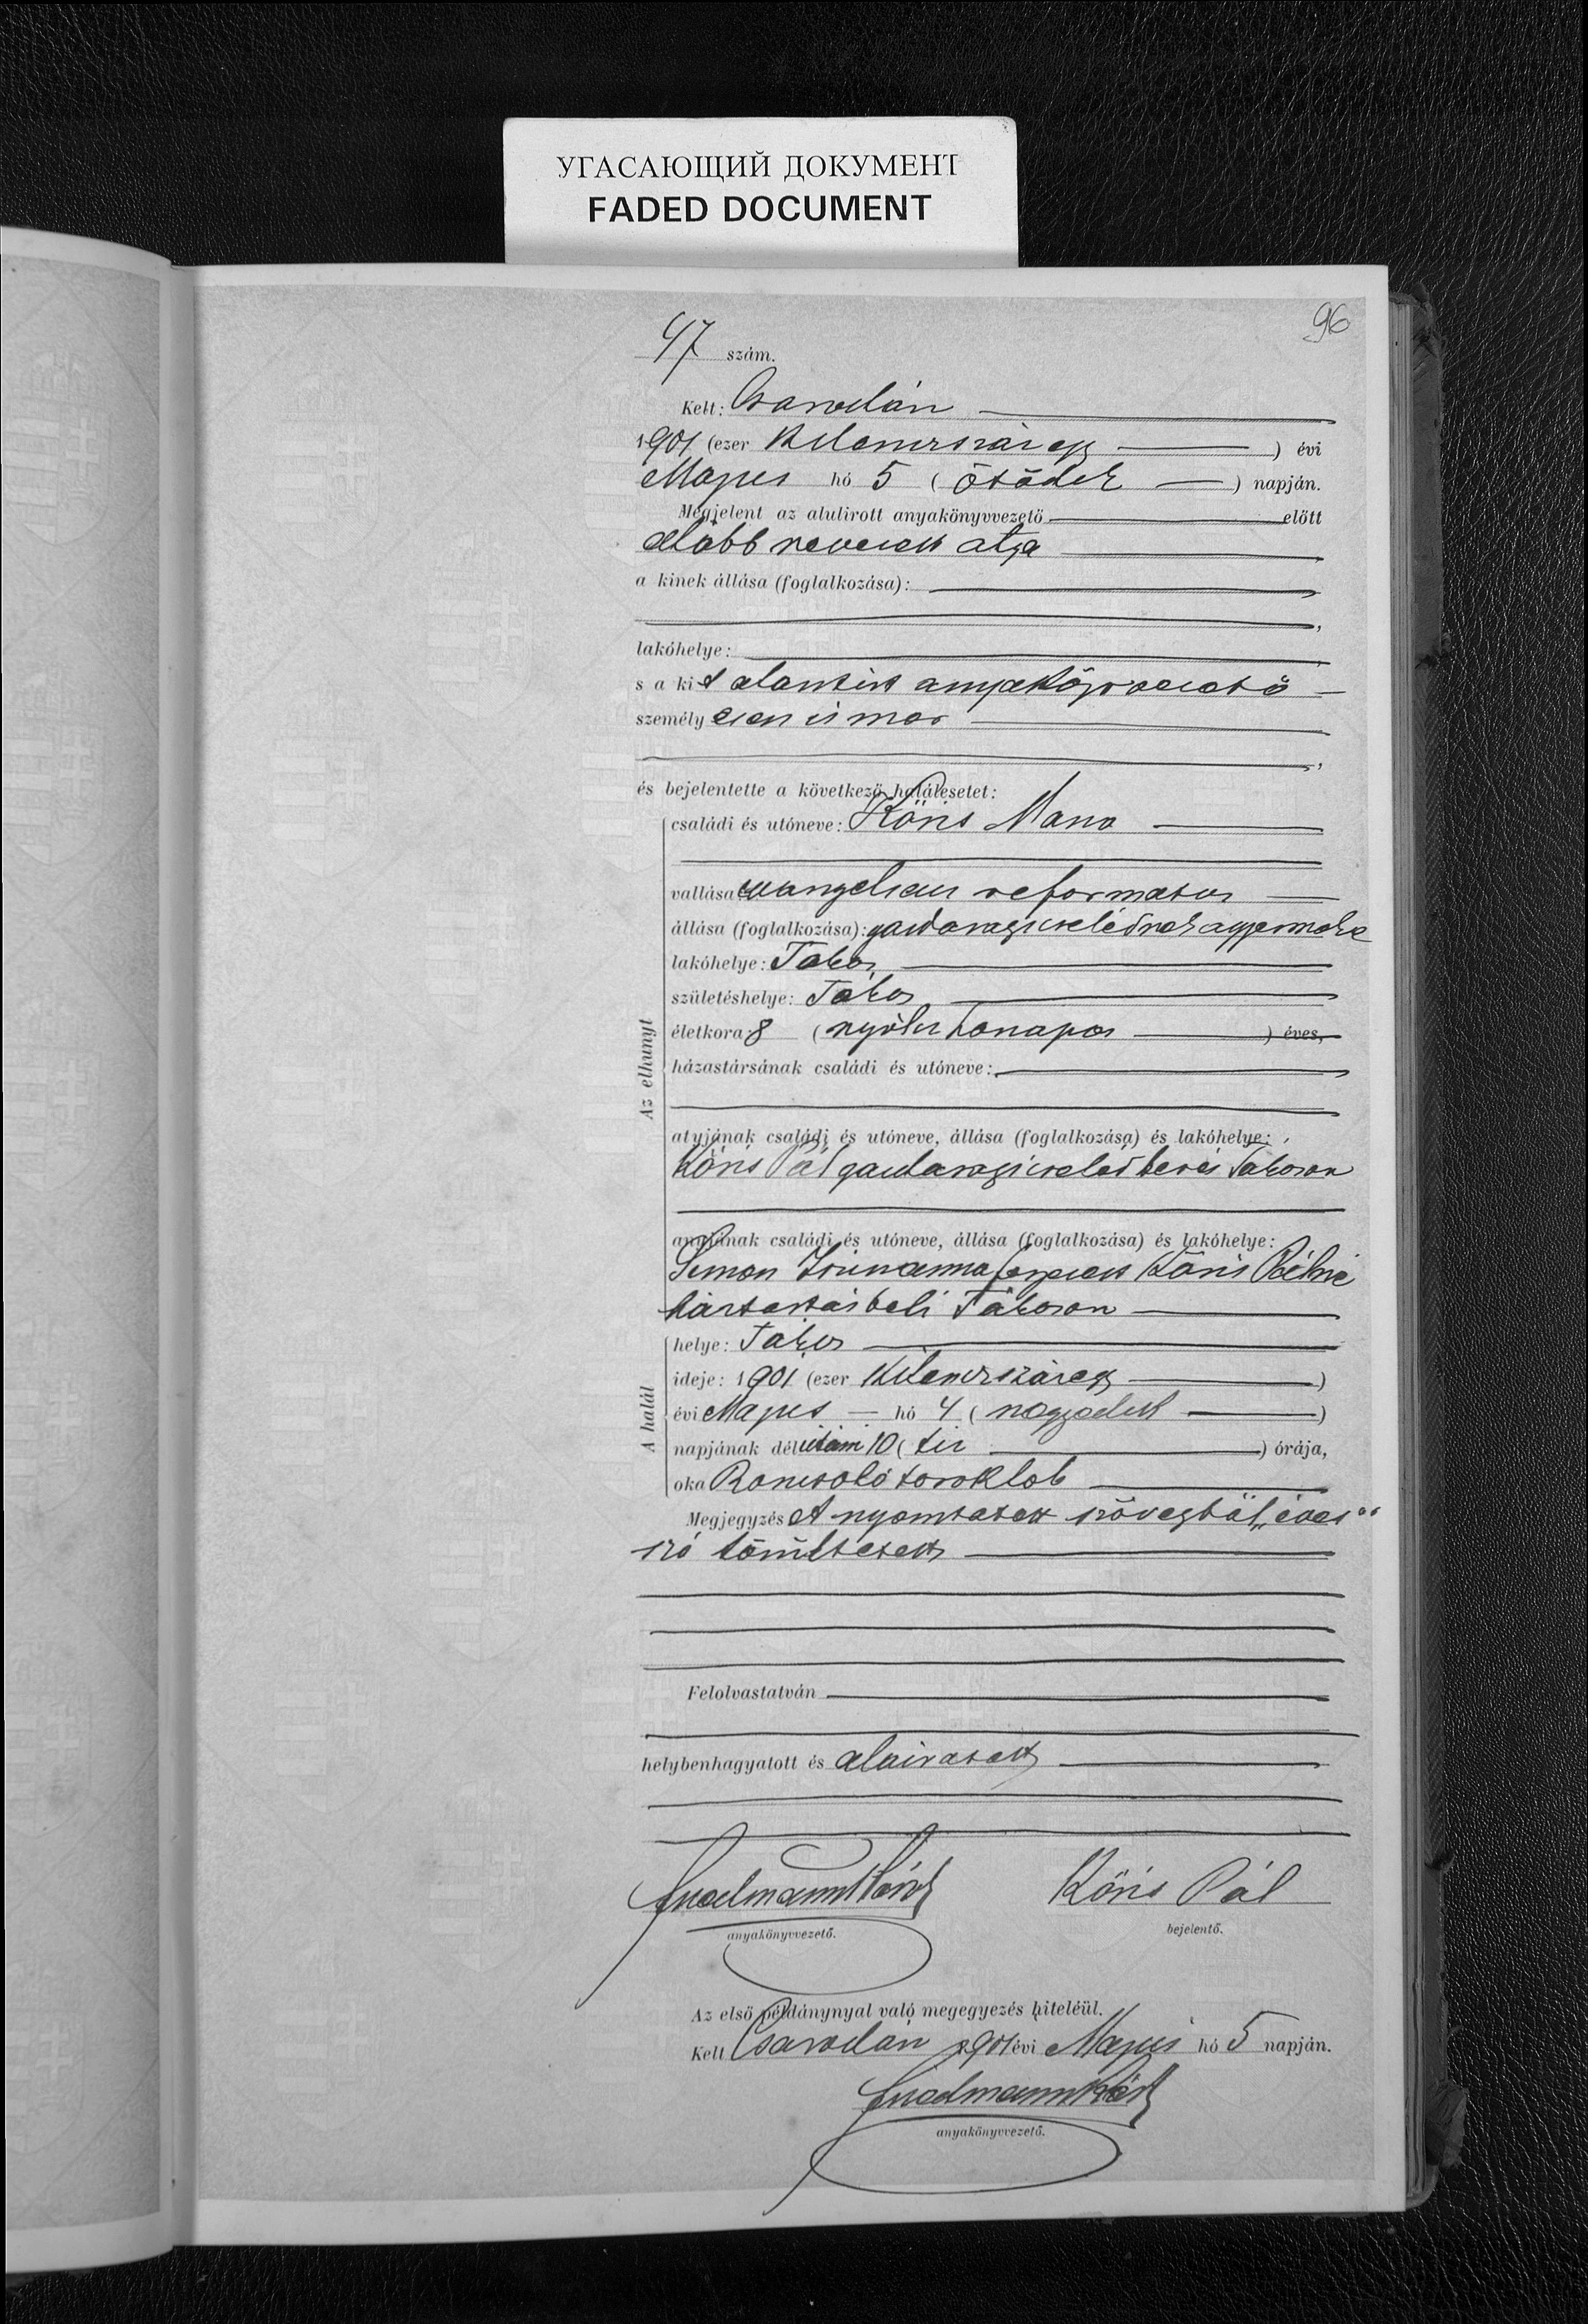 УГАСАЮЩИЙ ДОКУМЕНТ
FADED DOCUMENT
96
47 szám.
Kelt: Csarodán
1901 (ezer kilenczszáz egy ) évi
Május hó 5 ( ötödik ) napján.
Megjelent az alulirott anyakönyvvezető előtt
alább nevezett atya
a kinek állása (foglalkozása):
lakóhelye:
s a kit alantirt anyakönyvvezető
személyesen ismer
és bejelentette a következő halálesetet:
Az elhunyt
családi és utóneve: Kőris Mária
vallása: evangelicus reformatus
állása (foglalkozása): gazdasági cselédnek gyermeke
lakóhelye: Tákos
születéshelye: Tákos
életkora: 8 ( nyolcz hónapos ) éves,
házastársának családi és utóneve:
atyjának családi és utóneve, állása (foglalkozása) és lakóhelye:
Kőris Pál gazdasági cseléd Tákoson
anyjának családi és utóneve, állása (foglalkozása) és lakóhelye:
Simon Zsuzsanna Kőris Pálné
háztartásbeli Tákoson
A halál
helye: Tákos
ideje: 1901 (ezer kilenczszázegy )
évi Május hó 4 ( negyedik )
napjának délután 10 ( tíz ) órája,
oka Roncsoló toroklob
Megjegyzés A nyomtatott szövegből „éves"
szó töröltetett
Felolvastatván
helybenhagyatott és aláiratott
Kőris Pál
anyakönyvvezető.
bejelentő.
Az első példánynyal való megegyezés hiteléül.
Kelt Csarodán 1901 évi Május hó 5 napján.
anyakönyvvezető.